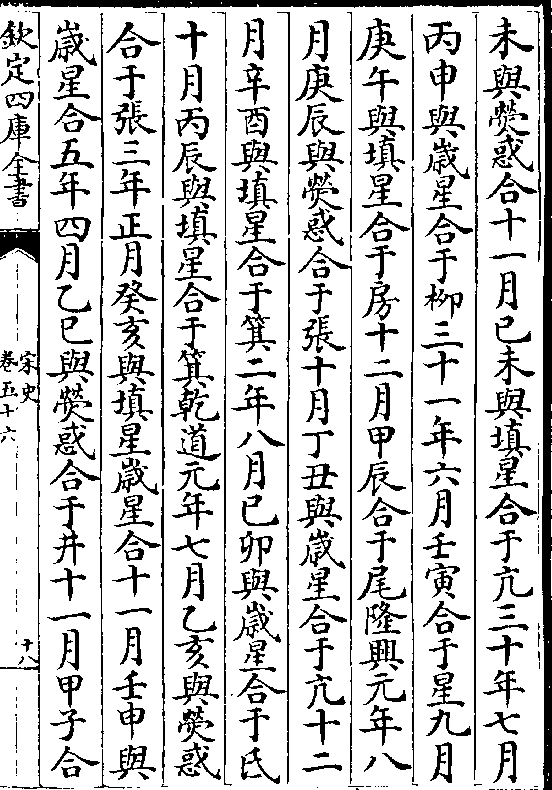 未與熒惑合十一月已未與填星合于亢三十年七月
丙申與嵗星合于柳三十一年六月壬寅合于星九月
庚午與填星合于房十二月甲辰合于尾隆興元年八
月庚辰與熒惑合于張十月丁丑與嵗星合于亢十二
月辛酉與填星合于箕二年八月已卯與嵗星合于氐
十月丙辰與填星合于箕乾道元年七月乙亥與熒惑
合于張三年正月癸亥與填星嵗星合十一月壬申與
嵗星合五年四月乙巳與熒惑合于井十一月甲子合
欽定四庫全書
宋史
卷五十六
十八